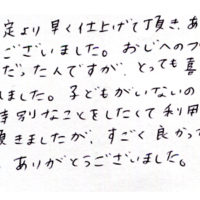 定より早く仕上げて頂き、あ
ございました。おじへのプ
だった人ですが、とっても喜
れました。子どもがいないの
特別なことをしたくて利用
頂きましたが、すごく良かっ
ありがとうございました。